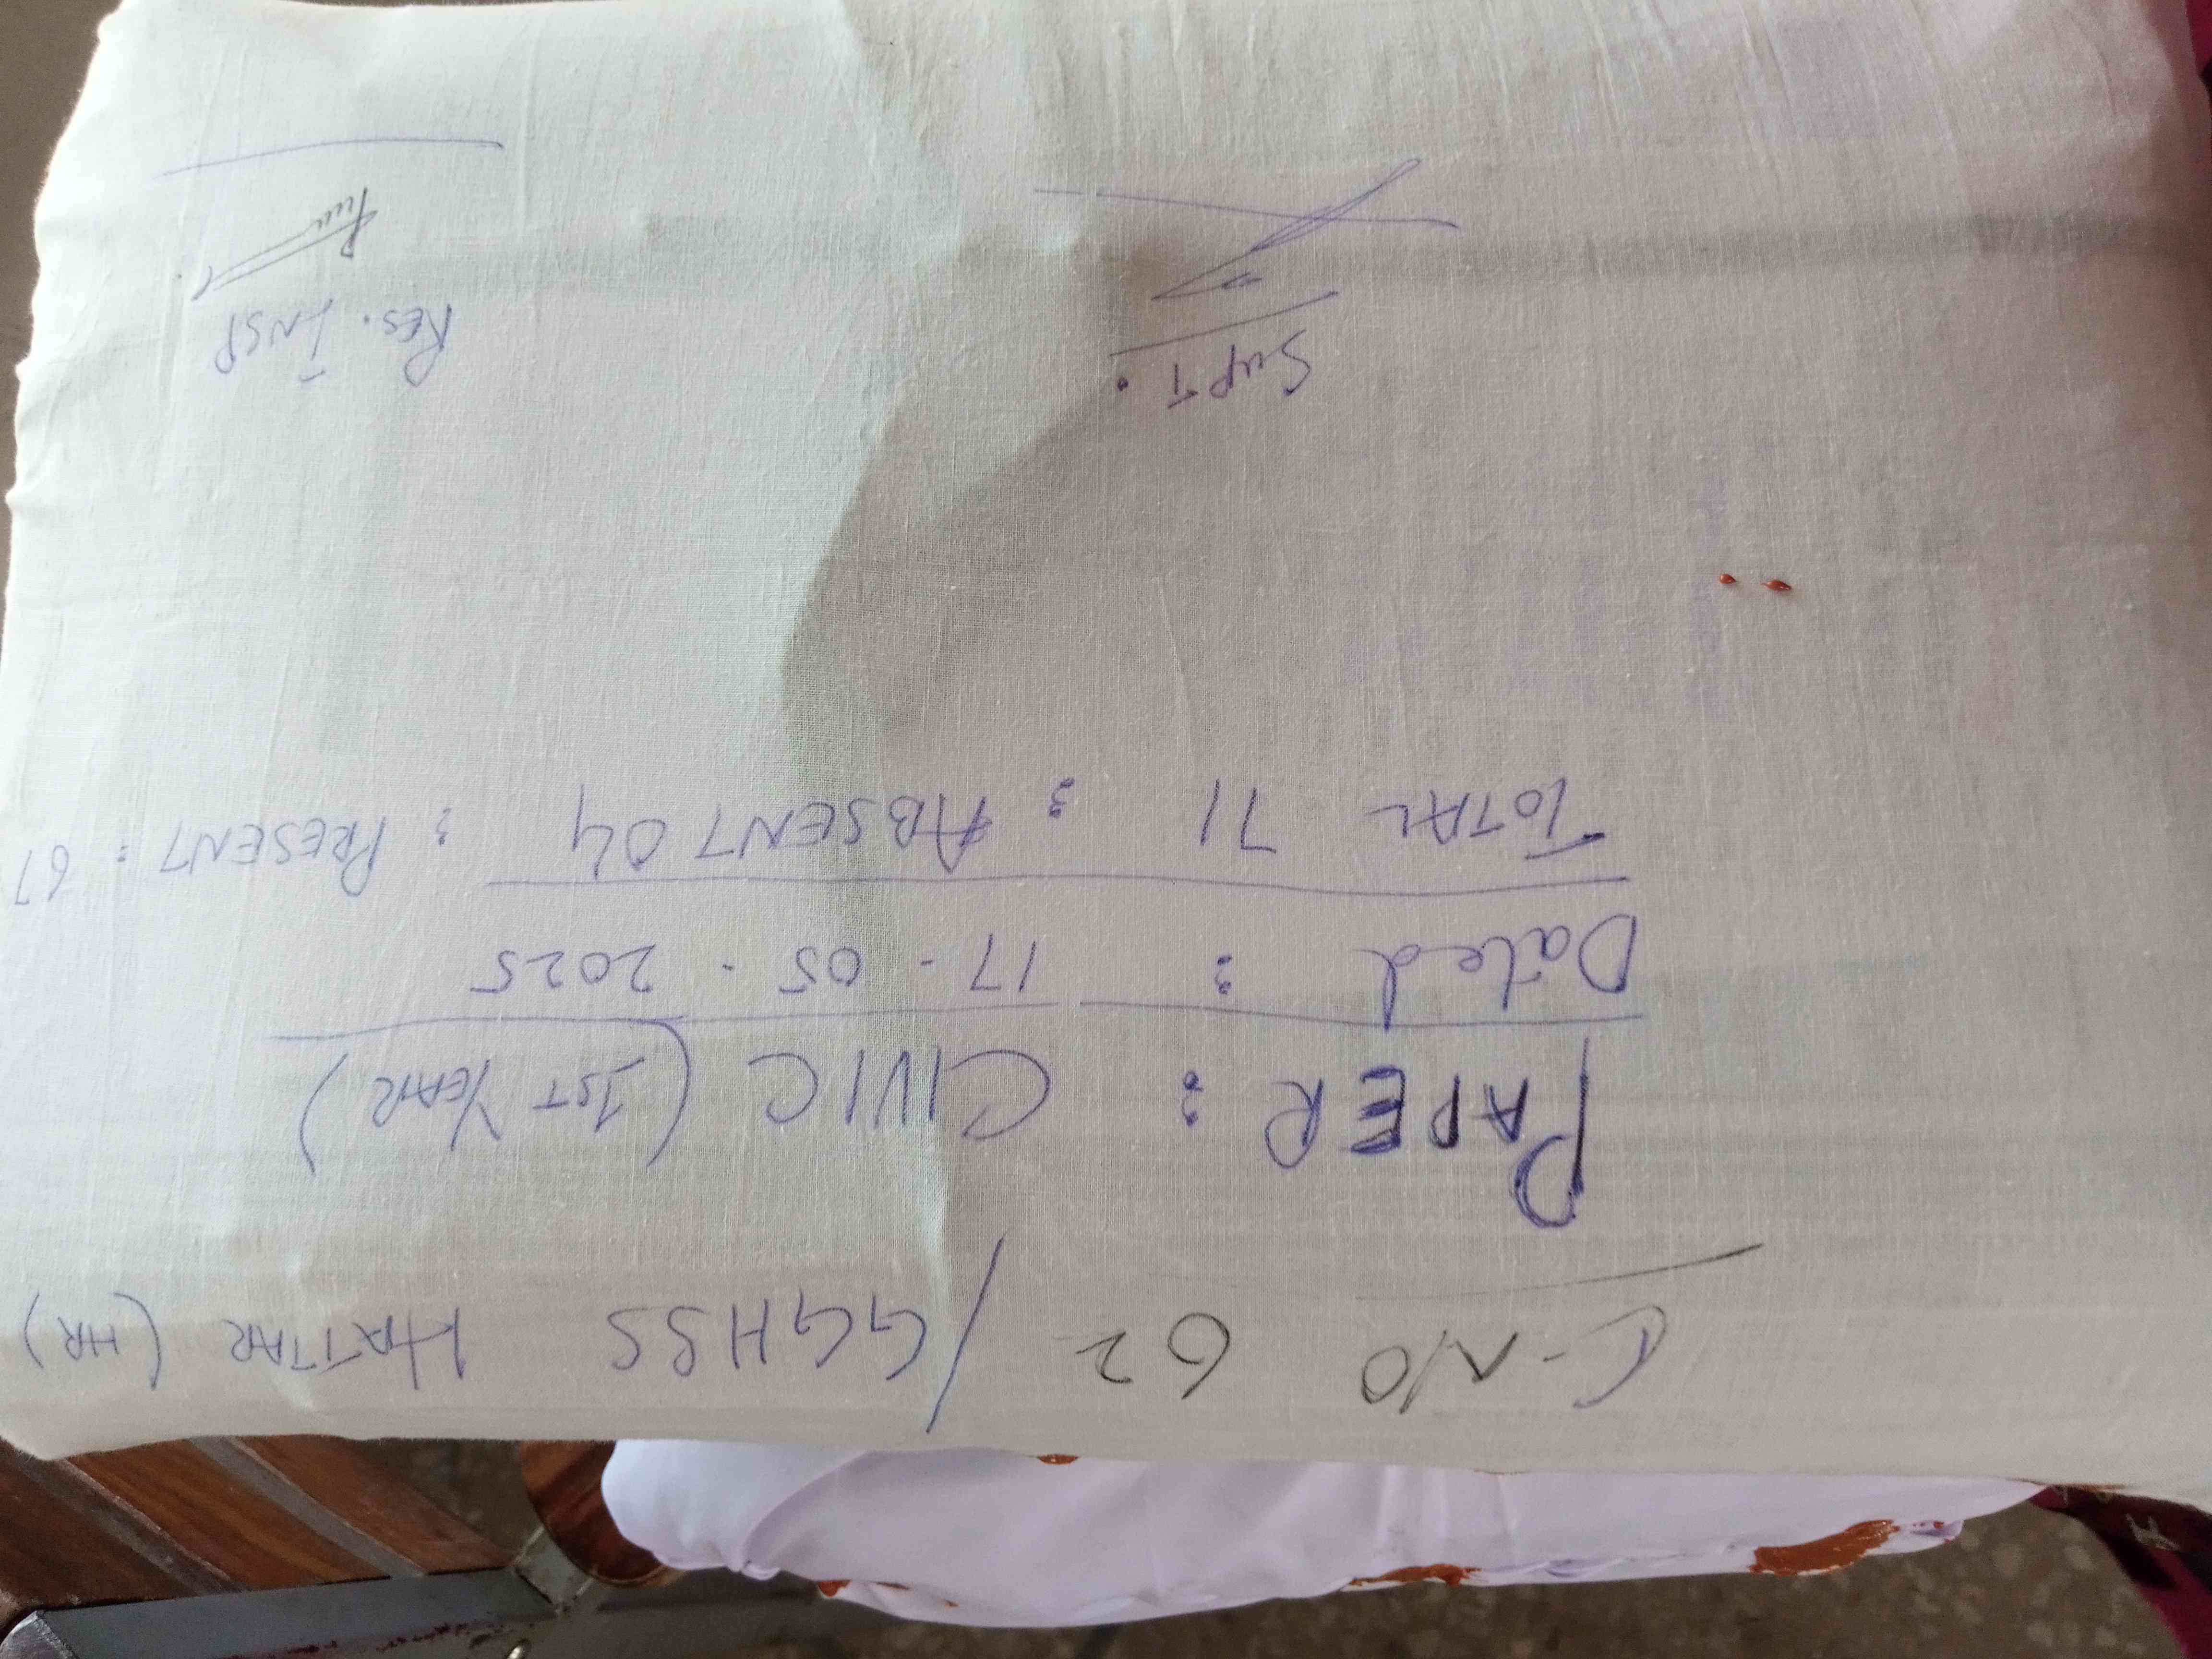 C-NO 62 / GGHSS HATTAR (HR)
PAPER : CIVIC (1ST YEAR)
Dated : 17-05-2025
TOTAL 71 : ABSENT 04 : PRESENT : 67
Supt. Res. INSP